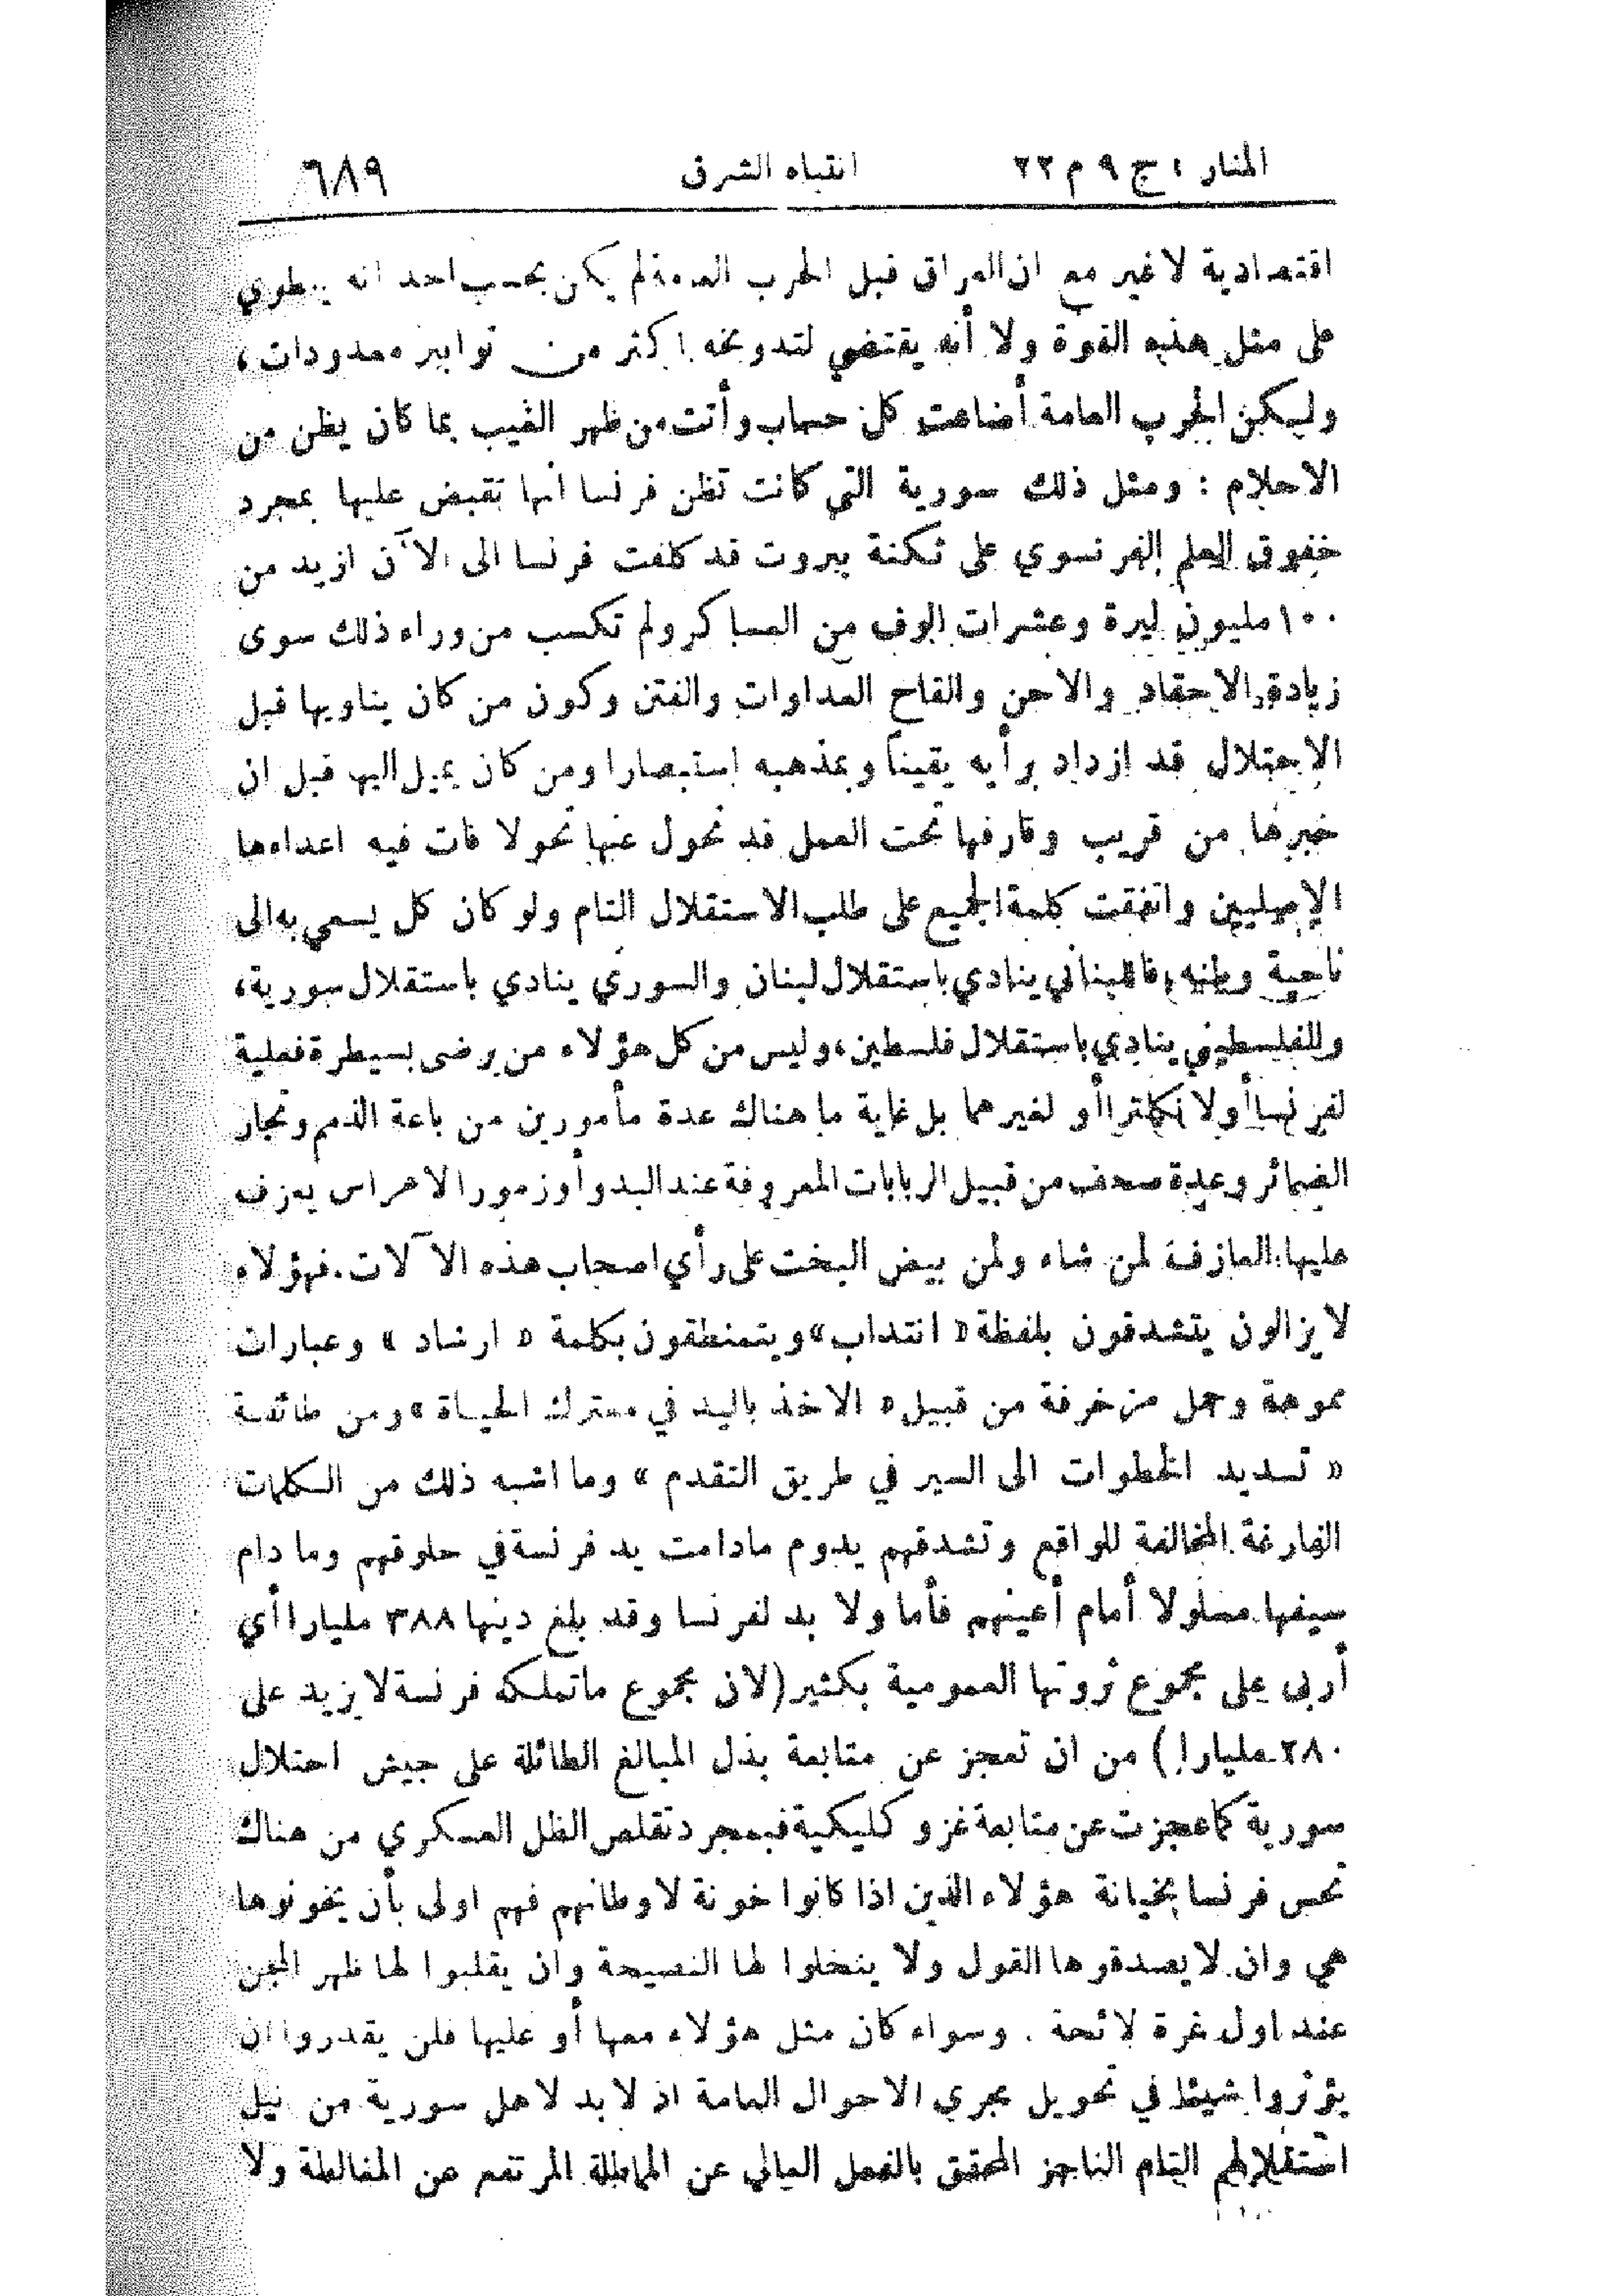 المنار : ج ٩ م ٢٢ انتباه الشرق ٦٨٩
اقتصادية لا غير مع ان العراق قبل الحرب العامة لم يكن يحسب احد انه ينطوي
على مثل هذه القوة ولا أنه يقتضي لتدويخه اكثر من توابير معدودات ،
ولكن الحرب العامة أضاعت كل حساب وأتت من ظهر الغيب بما كان يظن من
الاحلام : ومثل ذلك سورية التي كانت تظن فرنسا انها تقبض عليها بمجرد
خفوق العلم الفرنسوي على ثكنة بيروت قد كلفت فرنسا الى الآن ازيد من
١٠٠ مليون ليرة وعشرات الوف من العساكر ولم تكسب من وراء ذلك سوى
زيادة الاحقاد والاحن والقاح العداوات والفتن وكون من كان يناويها قبل
الاحتلال قد ازداد برأيه يقيناً وبمذهبه استبصارا ومن كان يميل اليها قبل ان
خبرها من قريب وقارفها تحت العمل قد تحول عنها تحولا فات فيه اعداءها
الاصليين واتفقت كلمة الجميع على طلب الاستقلال التام ولو كان كل يسعى به الى
ناحية وطنه ، فاللبناني ينادي باستقلال لبنان والسوري ينادي باستقلال سورية ،
والفلسطيني ينادي باستقلال فلسطين ، وليس من كل هؤلاء من يرضى بسيطرة فعلية
لفرنسا أو لانكلترا أو لغيرهما بل غاية ما هناك عدة مأمورين من باعة الذمم وتجار
الضمائر وعدة صحف من قبيل الربابات المعروفة عند البدو أو زمور الاعراس يعزف
عليها العازفة لمن شاء ولمن بيض البخت على رأي اصحاب هذه الآلات . فهؤلاء
لا يزالون يتشدقون بلفظة « انتداب » ويتمنطقون بكلمة « ارشاد » وعبارات
مموهة وجمل مزخرفة من قبيل « الاخذ باليد في معترك الحياة » ومن طائفة
« تسديد الخطوات الى السير في طريق التقدم » وما اشبه ذلك من الكلمات
الفارغة المخالفة للواقع وتشدقهم يدوم مادامت يد فرنسة في حلوقهم وما دام
سيفها مسلولا أمام أعينهم فأما ولا بد لفرنسا وقد بلغ دينها ٣٨٨ مليارا أي
أربى على مجموع ثروتها العمومية بكثير (لان مجموع ماتملكه فرنسة لا يزيد على
٢٨٠ مليارا ) من ان تعجز عن متابعة بذل المبالغ الطائلة على جيش احتلال
سورية كما عجزت عن متابعة غزو كليكية فبمجرد تقلص الظل العسكري من هناك
تحس فرنسا بخيانة هؤلاء الذين اذا كانوا خونة لاوطانهم فهم اولى بأن يخونوها
هي وان لا يصدقوها القول ولا ينخلوا لها النصيحة وان يقلبوا لها ظهر المجن
عند اول غرة لائحة . وسواء كان مثل هؤلاء معها أو عليها فلن يقدروا ان
يؤثروا شيئا في تحويل مجرى الاحوال العامة اذ لا بد لاهل سورية من نيل
استقلالهم التام الناجز المحقق بالفعل العالي عن المماطلة المرتفع عن المغالطة ولا